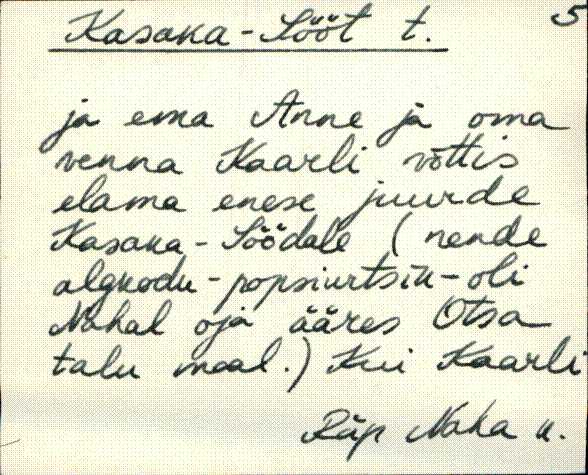 Kasaka-Sööt t. 5
ja ema Anne ja oma
venna Kaarli võttis
elama enese juurde
Kasaka-Söödale (nende
algkodu-popsiurtsik-oli
Nahal oja ääres Otsa
talu maal.) Kui Kaarli
Räp Naha k.